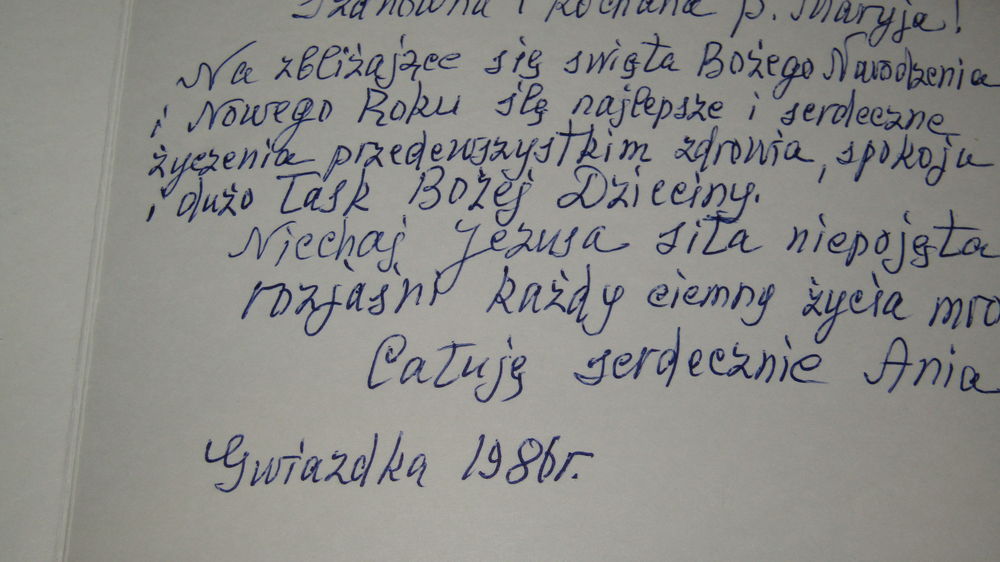 Szanowna i kochana p. Maryja!
Na zbliżające się święta Bożego Narodzenia
i Nowego Roku ślę najlepsze i serdeczne
życzenia przedewszystkim zdrowia, spokoju
i dużo łask Bożej Dzieciny.
Niechaj Jezusa siła niepojęta
rozjaśni każdy ciemny życia mro
Całuję serdecznie Ania
Gwiazdka 1986r.